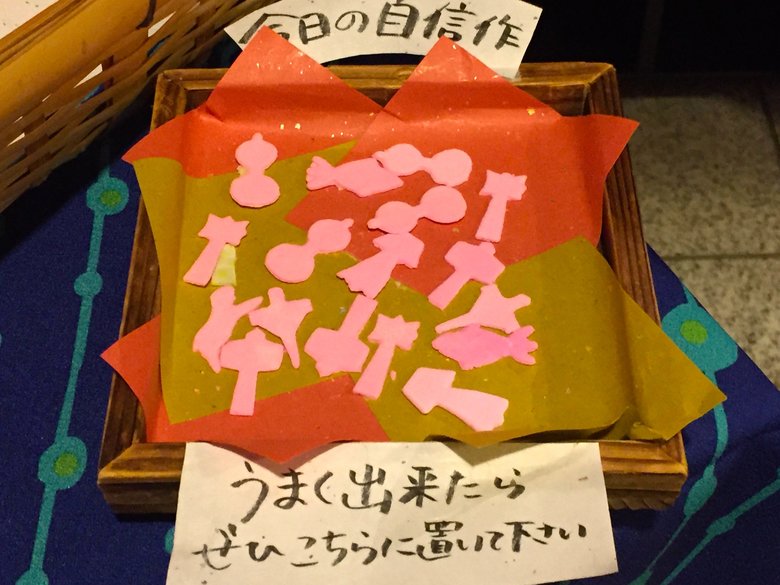 今日の自信作
うまく出来たら
ぜひこちらに置いて下さい